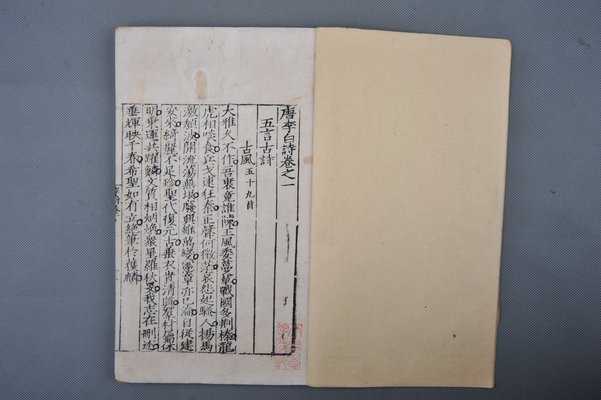 唐李白詩卷之一
五言古詩
古風五十九首
大雅久不作吾衰竟誰陳王風委蔓草戰國多荆榛龍
虎相啖食兵戈逮狂秦正聲何微茫哀怨起騷人揚馬
激頹波開流蕩無垠廢興雖萬變憲章亦已淪自從建
安來綺麗不足珎聖代復元古垂衣貴清真羣材屬休
明乗運共躍鱗文質相炳煥衆星羅秋旻我志在刪述
垂輝映千春希聖如有立絶筆於獲麟